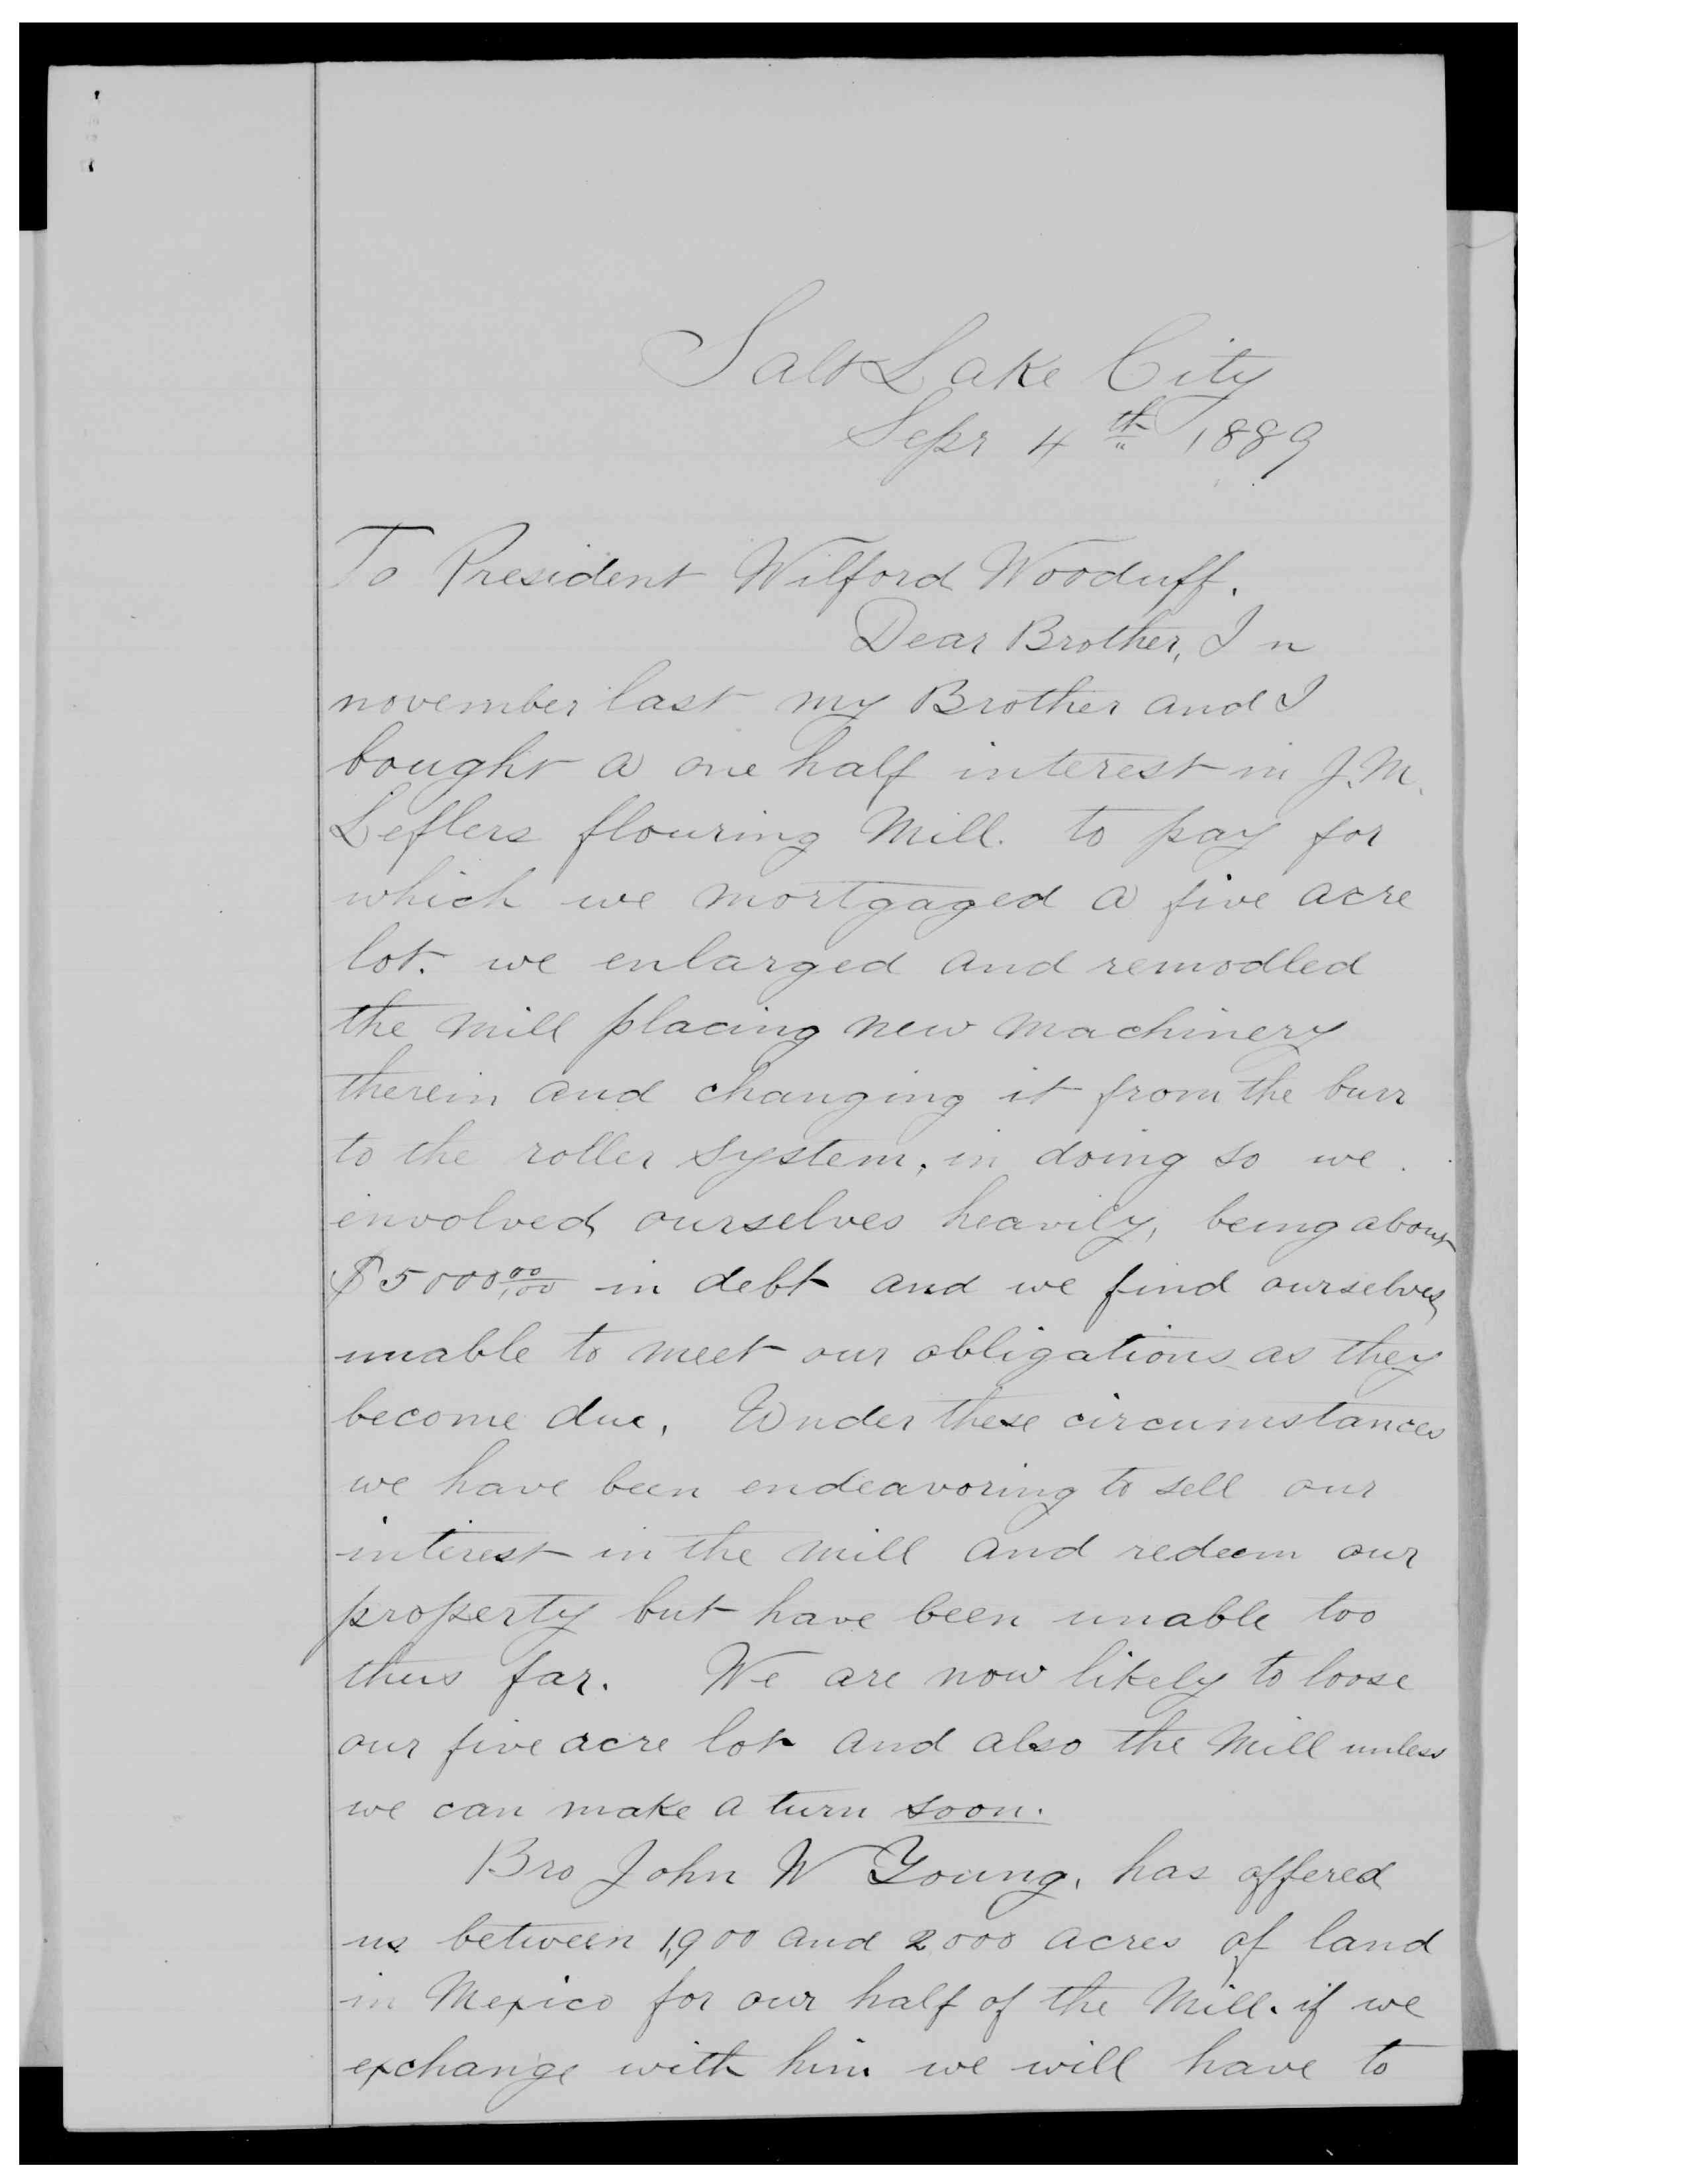 Salt Lake City
Sepr 4th 1889
To President Wilford Wooduff.
Dear Brother, In
november last my Brother and I
bought a one half interest in J.M.
Leflers flouring Mill. to pay for
which we mortgaged a five acre
lot. we enlarged and remodled
the mill placing new machinery
therein and changing it from the burr
to the roller system, in doing so we
envolved ourselves heavily, being about
$5000 00/100 in debt and we find ourselves
unable to meet our obligations as they
become due. Under these circumstances
we have been endeavoring to sell our
interest in the mill and redeem our
property but have been unable too
thus far. We are now likely to loose
our five acre lot and also the Mill unless
we can make a turn soon.
Bro John W Young, has offered
us between 1,900 and 2000 acres of land
in Mexico for our half of the Mill. if we
exchange with him we will have to